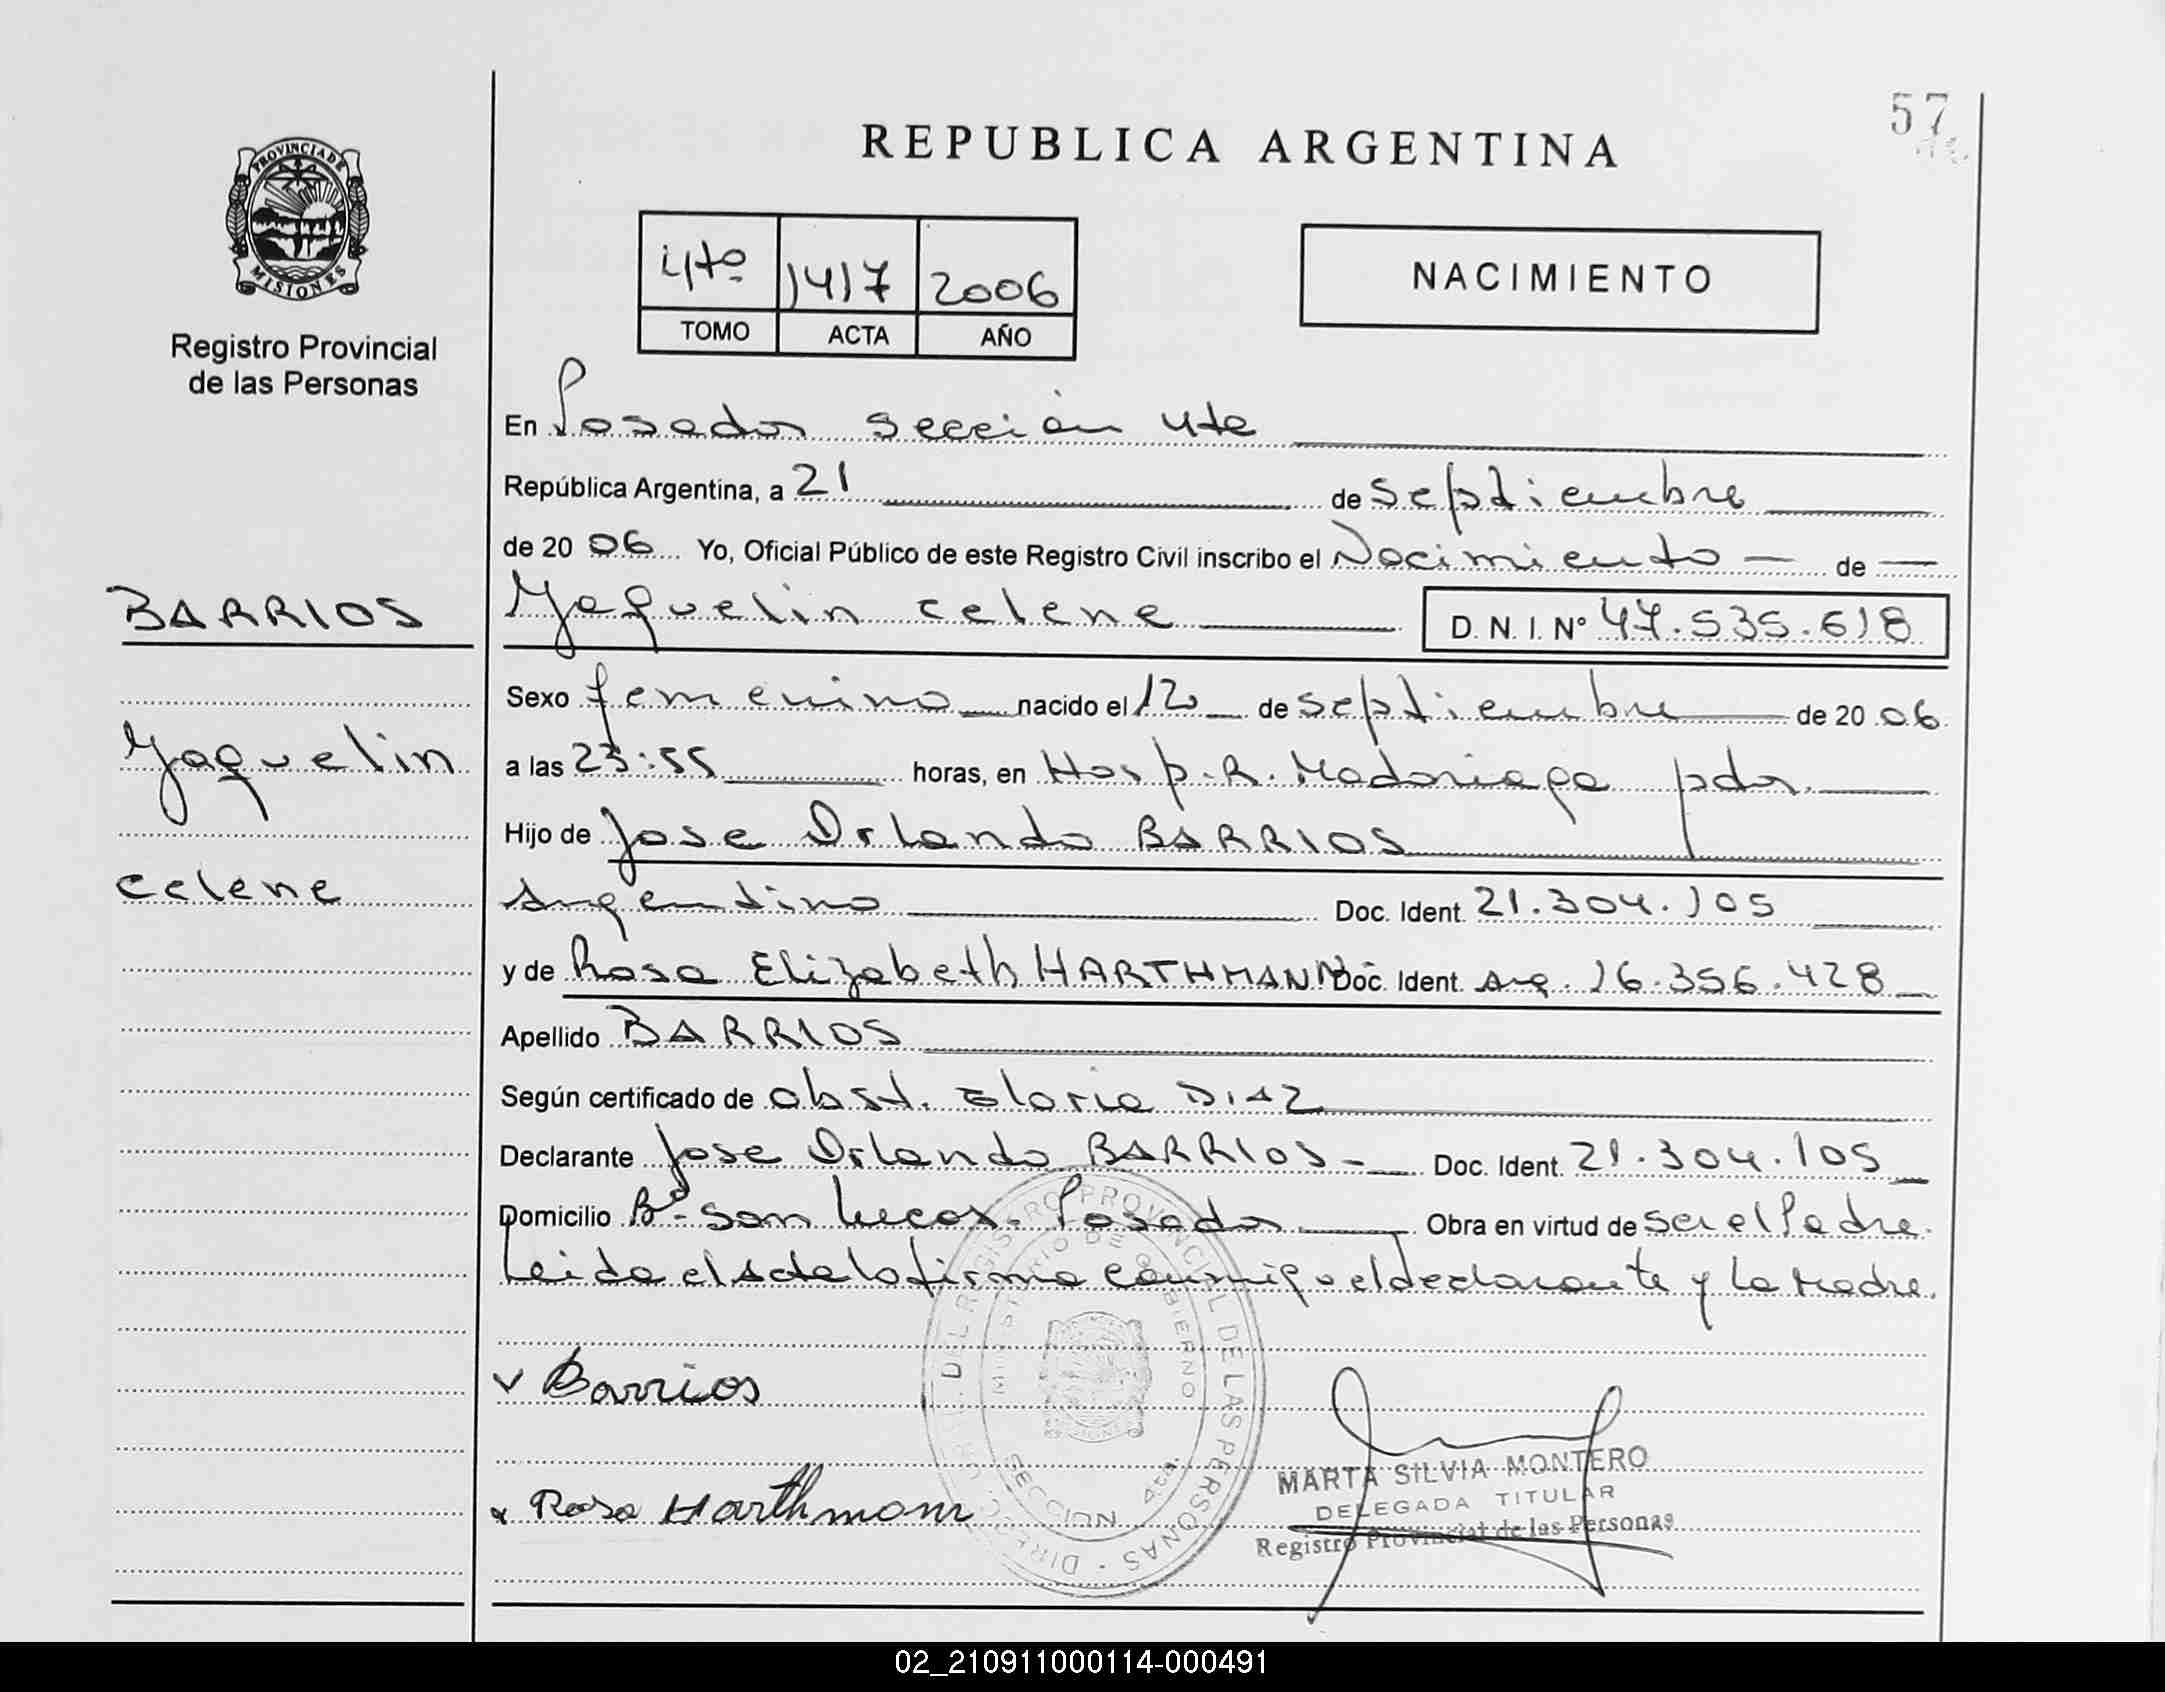 57
REPUBLICA ARGENTINA
PROVINCIA DE
MISIONES
Registro Provincial
de las Personas
4to 1417 2006
TOMO ACTA AÑO
NACIMIENTO
En Posadas sección 4ta
República Argentina, a 21 de septiembre
de 2006 Yo, Oficial Público de este Registro Civil inscribo el Nacimiento de
BARRIOS
Yaquelin celene D. N. I. Nº 47.535.618
Sexo femenino nacido el 12 de septiembre de 2006
Yaquelin
a las 23:55 horas, en Hosp. R. Madariaga pdas.
Hijo de Jose Orlando BARRIOS
celene
Argentino Doc. Ident. 21.304.105
y de Rosa Elizabeth HARTHMANN Doc. Ident. Arg. 16.356.428
Apellido BARRIOS
Según certificado de obst. Gloria DIAZ
Declarante Jose Orlando BARRIOS- Doc. Ident. 21.304.105
Domicilio Bº San Lucas. Posadas Obra en virtud de ser el Padre.
Leida el Acta la firma conmigo el declarante y la Madre.
Barrios
Rosa Harthmann
DIRECC. GRAL. DEL REGISTRO PROVINCIAL DE LAS PERSONAS
MINISTERIO DE GOBIERNO
SECCION 4ta.
MARTA SILVIA MONTERO
DELEGADA TITULAR
Registro Provincial de las Personas
02_210911000114-000491